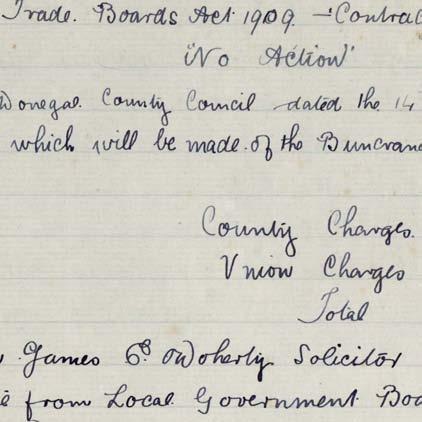 Trade. Boards Act 1909 - Contrac
"No Action"
Donegal County Council dated the 14
which will be made of the Buncrana
County Charges.
Union Charges
Total
James Co. O'Doherty Solicitor
from Local Government Boa